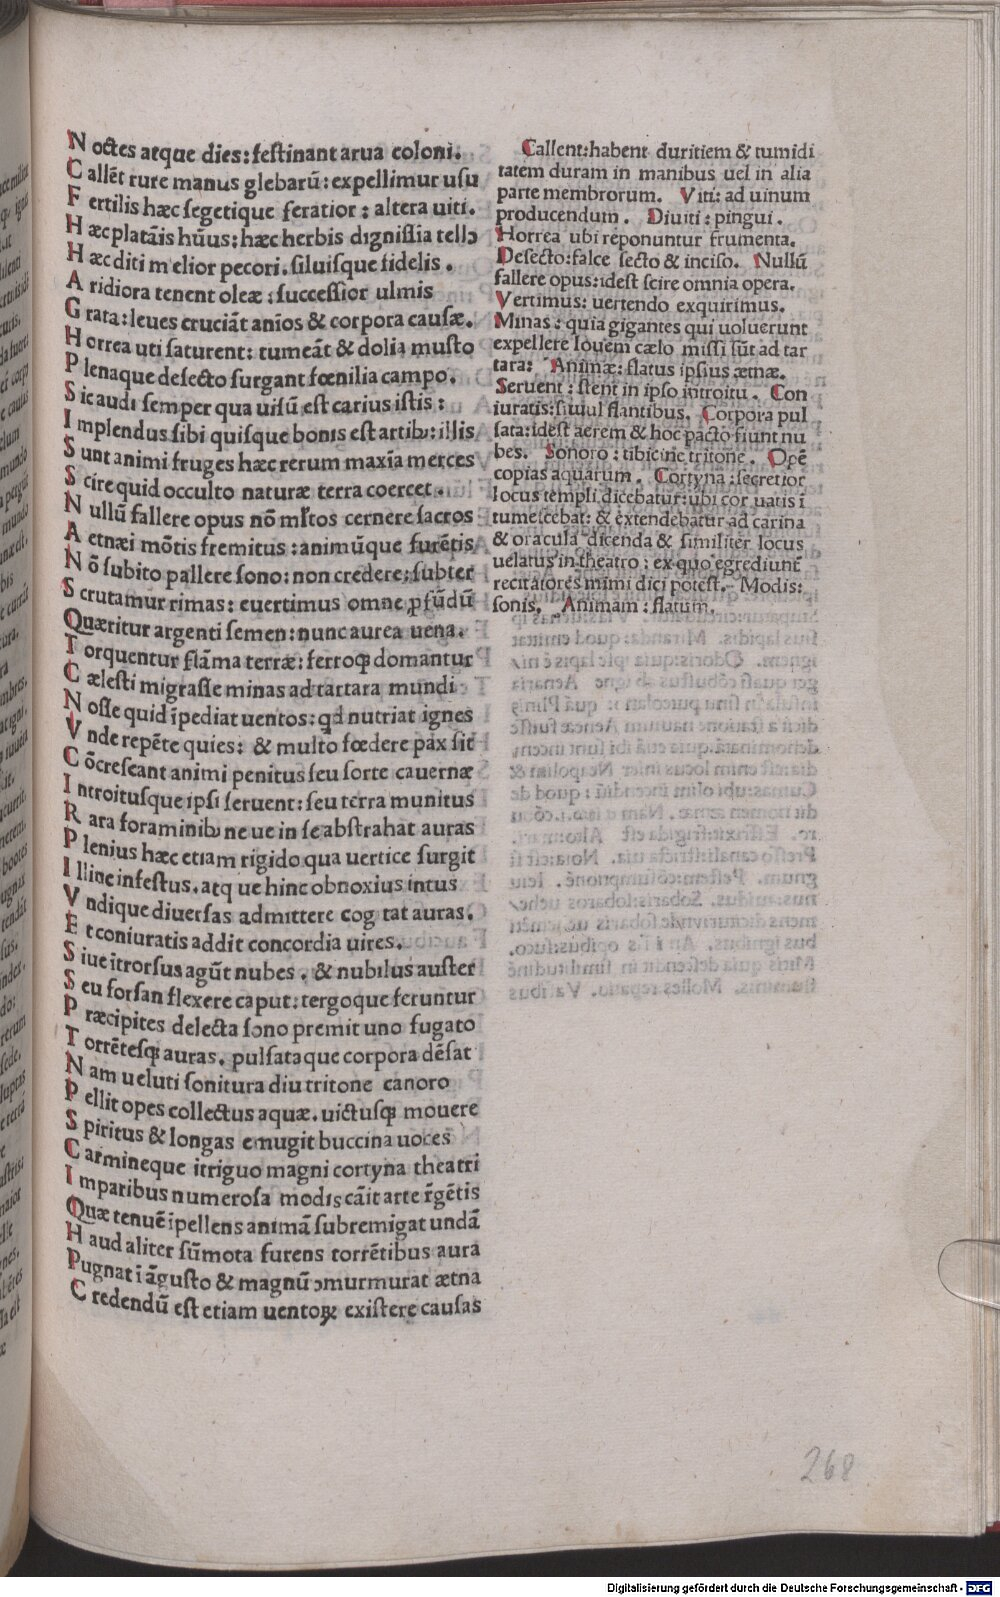 Noctes atque dies: festinant arua coloni.
Callēt rure manus glebarū: expellimur usu
Fertilis hæc segetique feratior: altera uiti.
Hæc platāis hūus: hæc herbis dignissia tellɔ
Hæc diti melior pecori. siluisque fidelis.
Aridiora tenent oleæ: successior ulmis
Grata: leues cruciāt anios & corpora causæ.
Horrea uti saturent: tumeāt & dolia musto
Plenaque desecto surgant fœnilia campo.
Sic audi semper qua uisū est carius istis:
Implendus sibi quisque bonis est artib: illis
Sunt animi fruges hæc rerum maxīa merces
Scire quid occulto naturæ terra coercet.
Nullū fallere opus nō mltos cernere sacros
Aetnæi mōtis fremitus: animūque furētis
Nō subito pallere sono: non credere: subter
Scrutamur rimas: euertimus omne pfūdū
Quæritur argenti semen: nunc aurea uena.
Torquentur flāma terræ: ferroq domantur
Cælesti migrasse minas ad tartara mundi
Nosse quid īpediat uentos: qd nutriat ignes
Vnde repēte quies: & multo fœdere pax sit
Cōcrescant animi penitus seu sorte cauernæ
Introitusque ipsi seruent: seu terra munitus
Rara foraminib ne ue in se abstrahat auras
Plenius hæc etiam rigido qua uertice surgit
Illinc infestus. atque hinc obnoxius intus
Vndique diuersas admittere cogitat auras.
Et coniuratis addit concordia uires.
Siue ītrorsus agūt nubes. & nubilus auster
Seu forsan flexere caput: tergoque feruntur
Præcipites delecta sono premit uno fugato
Torrētesq auras. pulsataque corpora dēsat
Nam ueluti sonitura diu tritone canoro
Pellit opes collectus aquæ. uictusq mouere
Spiritus & longas emugit buccina uoces
Carmineque irriguo magni cortyna theatri
Imparibus numerosa modis cāit arte rgētis
Quæ tenuē īpellens animā subremigat undā
Haud aliter sūmota furens torrētibus aura
Pugnat ī āgusto & magnū ɔmurmurat ætna
Credendū est etiam uentoꝝ existere causas
Callent: habent duritiem & tumidi
tatem duram in manibus uel in alia
parte membrorum. Viti: ad uinum
producendum. Diuiti: pingui.
Horrea ubi reponuntur frumenta.
Desecto: falce secto & inciso. Nullū
fallere opus: idest scire omnia opera.
Vertimus: uertendo exquirimus.
Minas: quia gigantes qui uoluerunt
expellere Iouem cælo missi sūt ad tar
tara: Animæ: flatus ipsius ætnæ.
Seruent: stent in ipso introitu. Con
iuratis: simul flantibus. Corpora pul
sata: idest aerem & hoc pacto fiunt nu
bes. Sonoro: tibicine tritone. Opē
copias aquarum. Cortyna: secretior
locus templi dicebatur: ubi cor uatis ī
tumescebat: & extendebatur ad carina
& oracula dicenda & similiter locus
uelatus in theatro: ex quo egrediunt
recitatores mimi dici potest. Modis:
sonis. Animam: flatum.
268
Digitalisierung gefördert durch die Deutsche Forschungsgemeinschaft - DFG